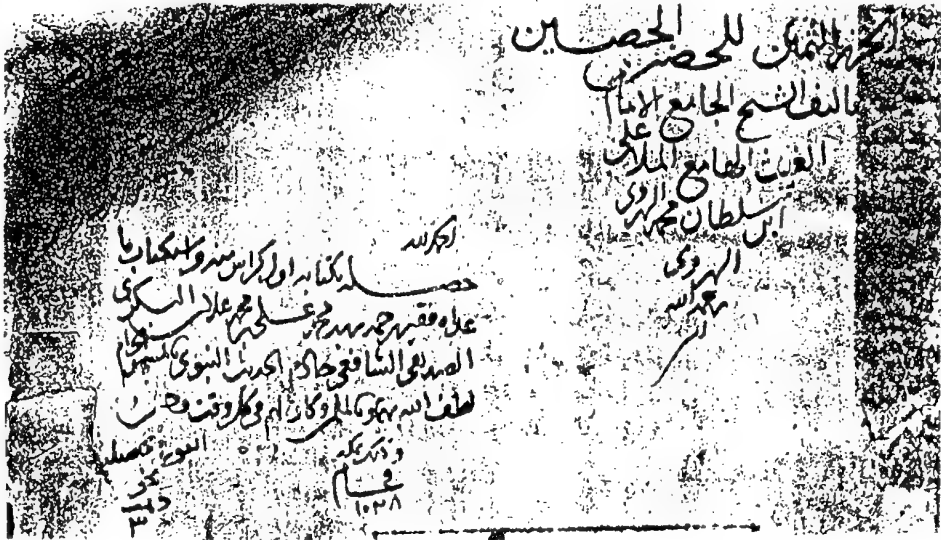 الحرز الثمين للحصن الحصين
تاليف الشيخ الجامع الامام
الغيث الهامع الملا علي
ابن سلطان محمد الهروي
الهروي
رحمه الله
الحمد لله
حصله بكتابة اول كراس منه والكتاب
فقير رحمة ربه محمد علي بن محمد علان البكري
الصديقي الشافعي خادم الحديث النبوي
لطف الله بهم وكان لهم
وذلك بمكة
في عام
١٠٣٨